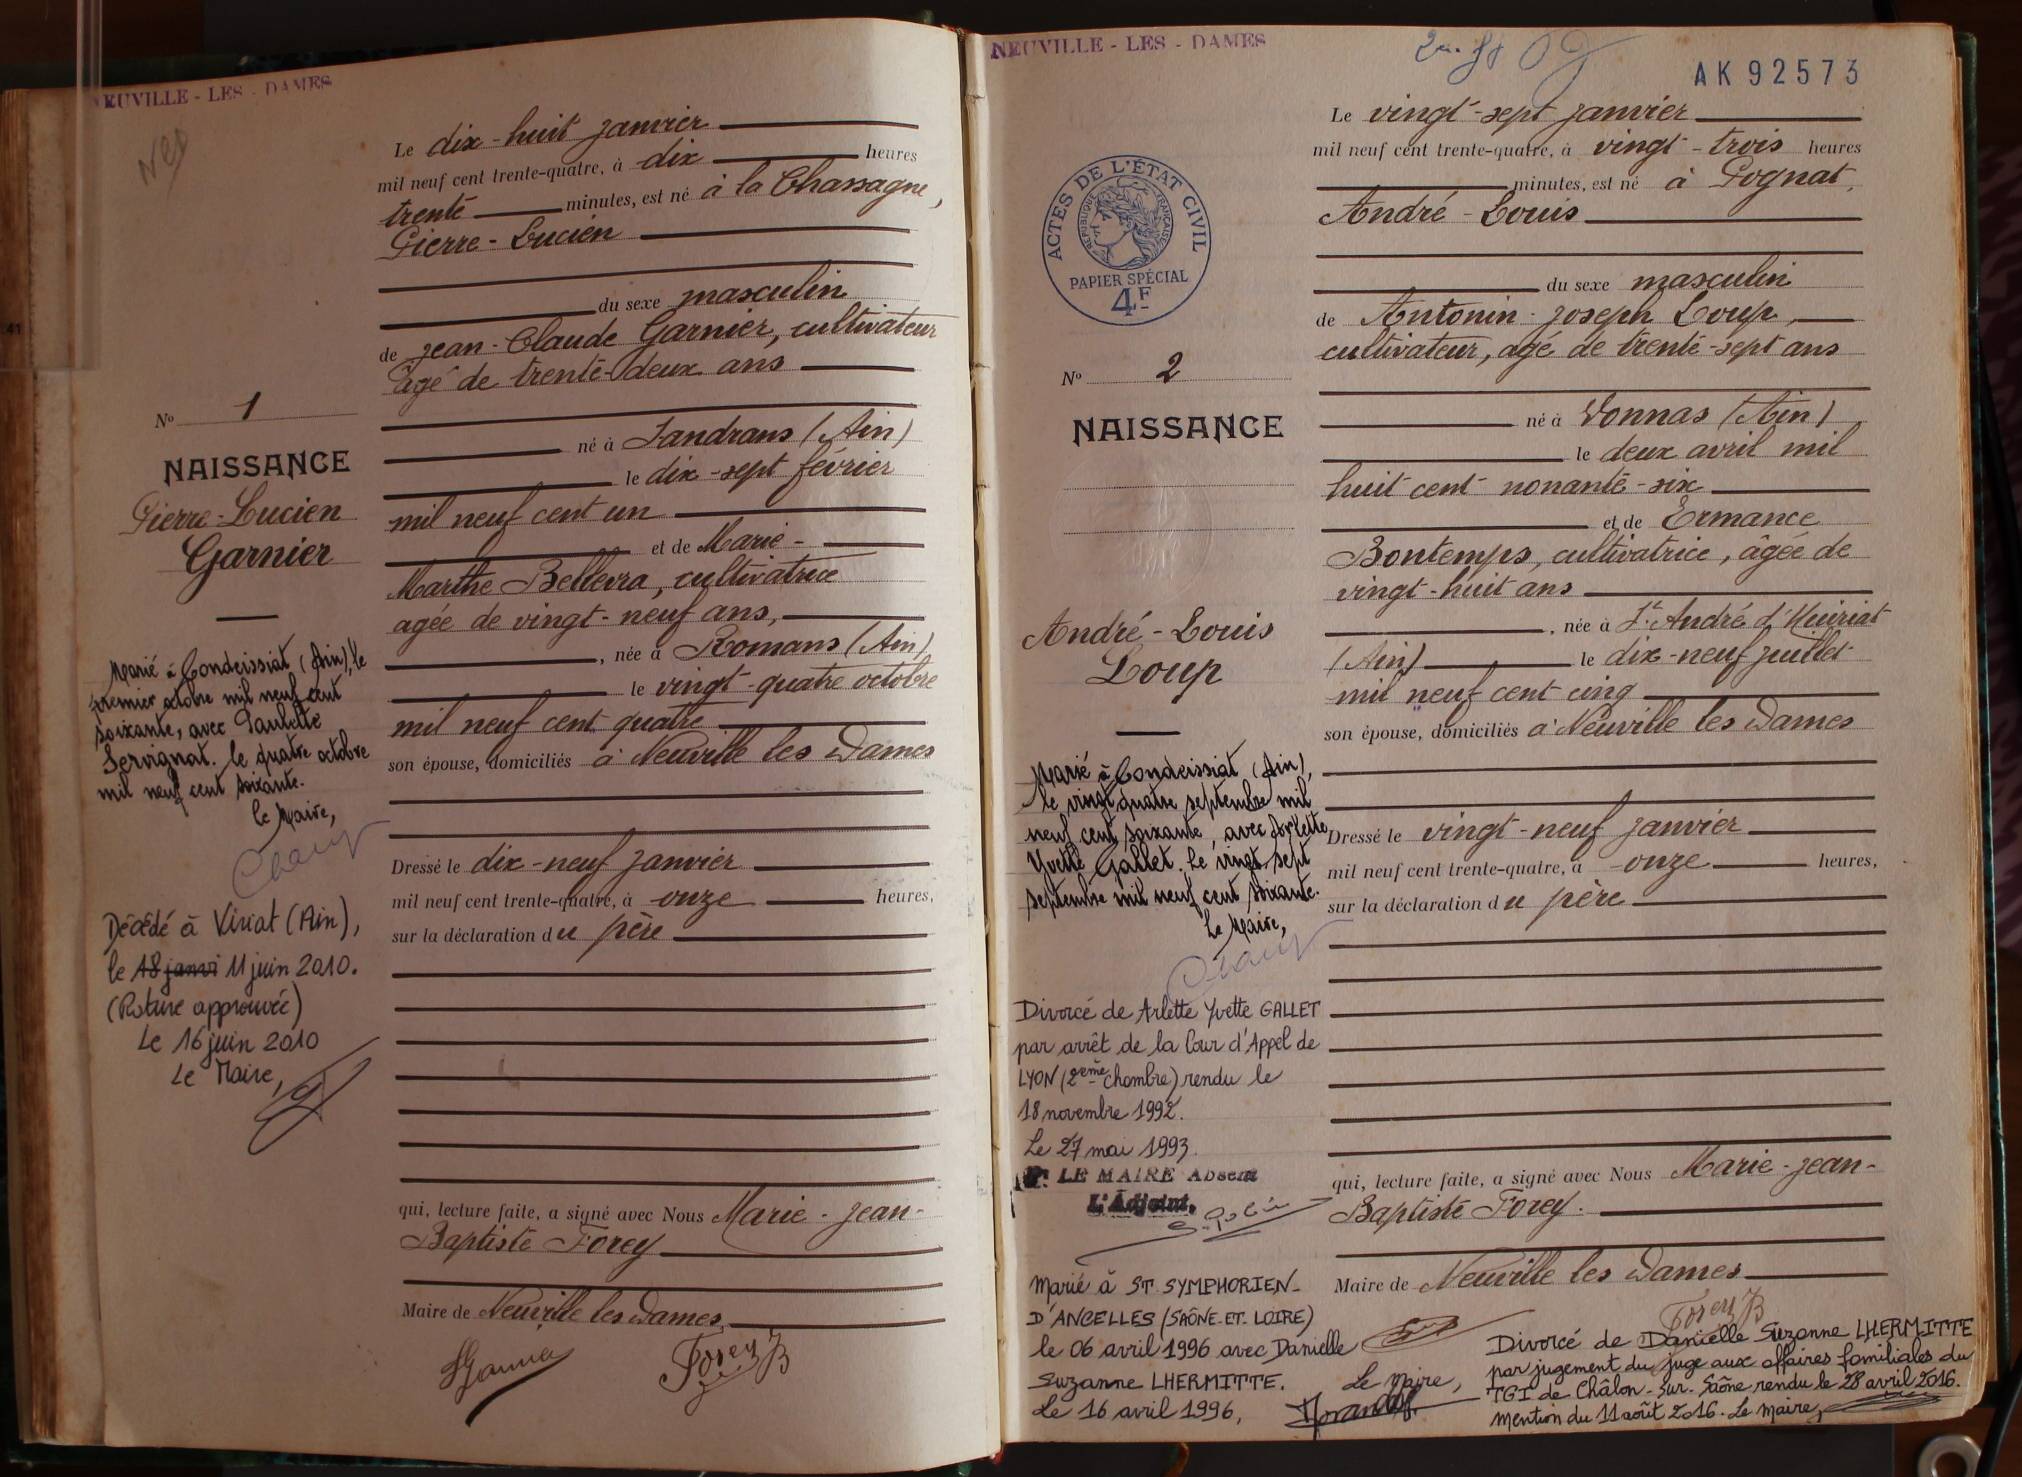 NEUVILLE - LES - DAMES
Le dix-huit janvier
mil neuf cent trente-quatre, à dix heures
trente minutes, est né à la Chassagne,
Pierre-Lucien
du sexe masculin
de Jean-Claude Garnier, cultivateur
âgé de trente-deux ans
né à Sandrans (Ain)
le dix-sept février
mil neuf cent un
et de Marie-
Marthe Bellevra, cultivatrice
agée de vingt-neuf ans,
, née à Romans (Ain)
le vingt-quatre octobre
mil neuf cent quatre
son épouse, domiciliés à Neuville les Dames
Dressé le dix-neuf janvier
mil neuf cent trente-quatre, à onze heures,
sur la déclaration du père
qui, lecture faite, a signé avec Nous Marie-Jean-
Baptiste Forey
Maire de Neuville les Dames
Forey JB
No 1
NAISSANCE
Pierre-Lucien
Garnier
Marié à Condeissiat (Ain), le
premier octobre mil neuf cent
soixante, avec Paulette
Servignat. le quatre octobre
mil neuf cent soixante.
le Maire,
Décédé à Viriat (Ain),
le 18 janvi 11 juin 2010.
(Rature approuvée)
Le 16 juin 2010
Le Maire,
NEUVILLE - LES - DAMES
AK 92573
ACTES DE L'ÉTAT CIVIL
RÉPUBLIQUE FRANÇAISE
PAPIER SPÉCIAL
4F
Le vingt-sept janvier
mil neuf cent trente-quatre, à vingt-trois heures
minutes, est né à Pognat,
André-Louis
du sexe masculin
de Antonin-Joseph Loup,
cultivateur, agé de trente-sept ans
né à Vonnas (Ain)
le deux avril mil
huit cent nonante-six
et de Ermance
Bontemps, cultivatrice, âgée de
vingt-huit ans
, née à St André d'Huiriat
(Ain) le dix-neuf juillet
mil neuf cent cinq
son épouse, domiciliés à Neuville les Dames
Dressé le vingt-neuf janvier
mil neuf cent trente-quatre, à onze heures,
sur la déclaration du père
qui, lecture faite, a signé avec Nous Marie-Jean-
Baptiste Forey.
Maire de Neuville les Dames
Forey JB
No 2
NAISSANCE
André-Louis
Loup
Marié à Condeissiat (Ain),
le vingt quatre septembre mil
neuf cent soixante, avec Arlette
Yvette Gallet. Le vingt sept
septembre mil neuf cent soixante.
Le Maire,
Divorcé de Arlette Yvette GALLET
par arrêt de la Cour d'Appel de
LYON (2ème chambre) rendu le
18 novembre 1992.
Le 27 mai 1993.
P. LE MAIRE Absent
L'Adjoint,
Marié à ST SYMPHORIEN-
D'ANCELLES (SAÔNE-ET-LOIRE)
le 06 avril 1996 avec Danielle
Suzanne LHERMITTE.
Le 16 avril 1996,
Le Maire,
Divorcé de Danielle Suzanne LHERMITTE
par jugement du juge aux affaires familiales du
TGI de Châlon-sur-Saône rendu le 28 avril 2016.
Mention du 11 août 2016. Le Maire,